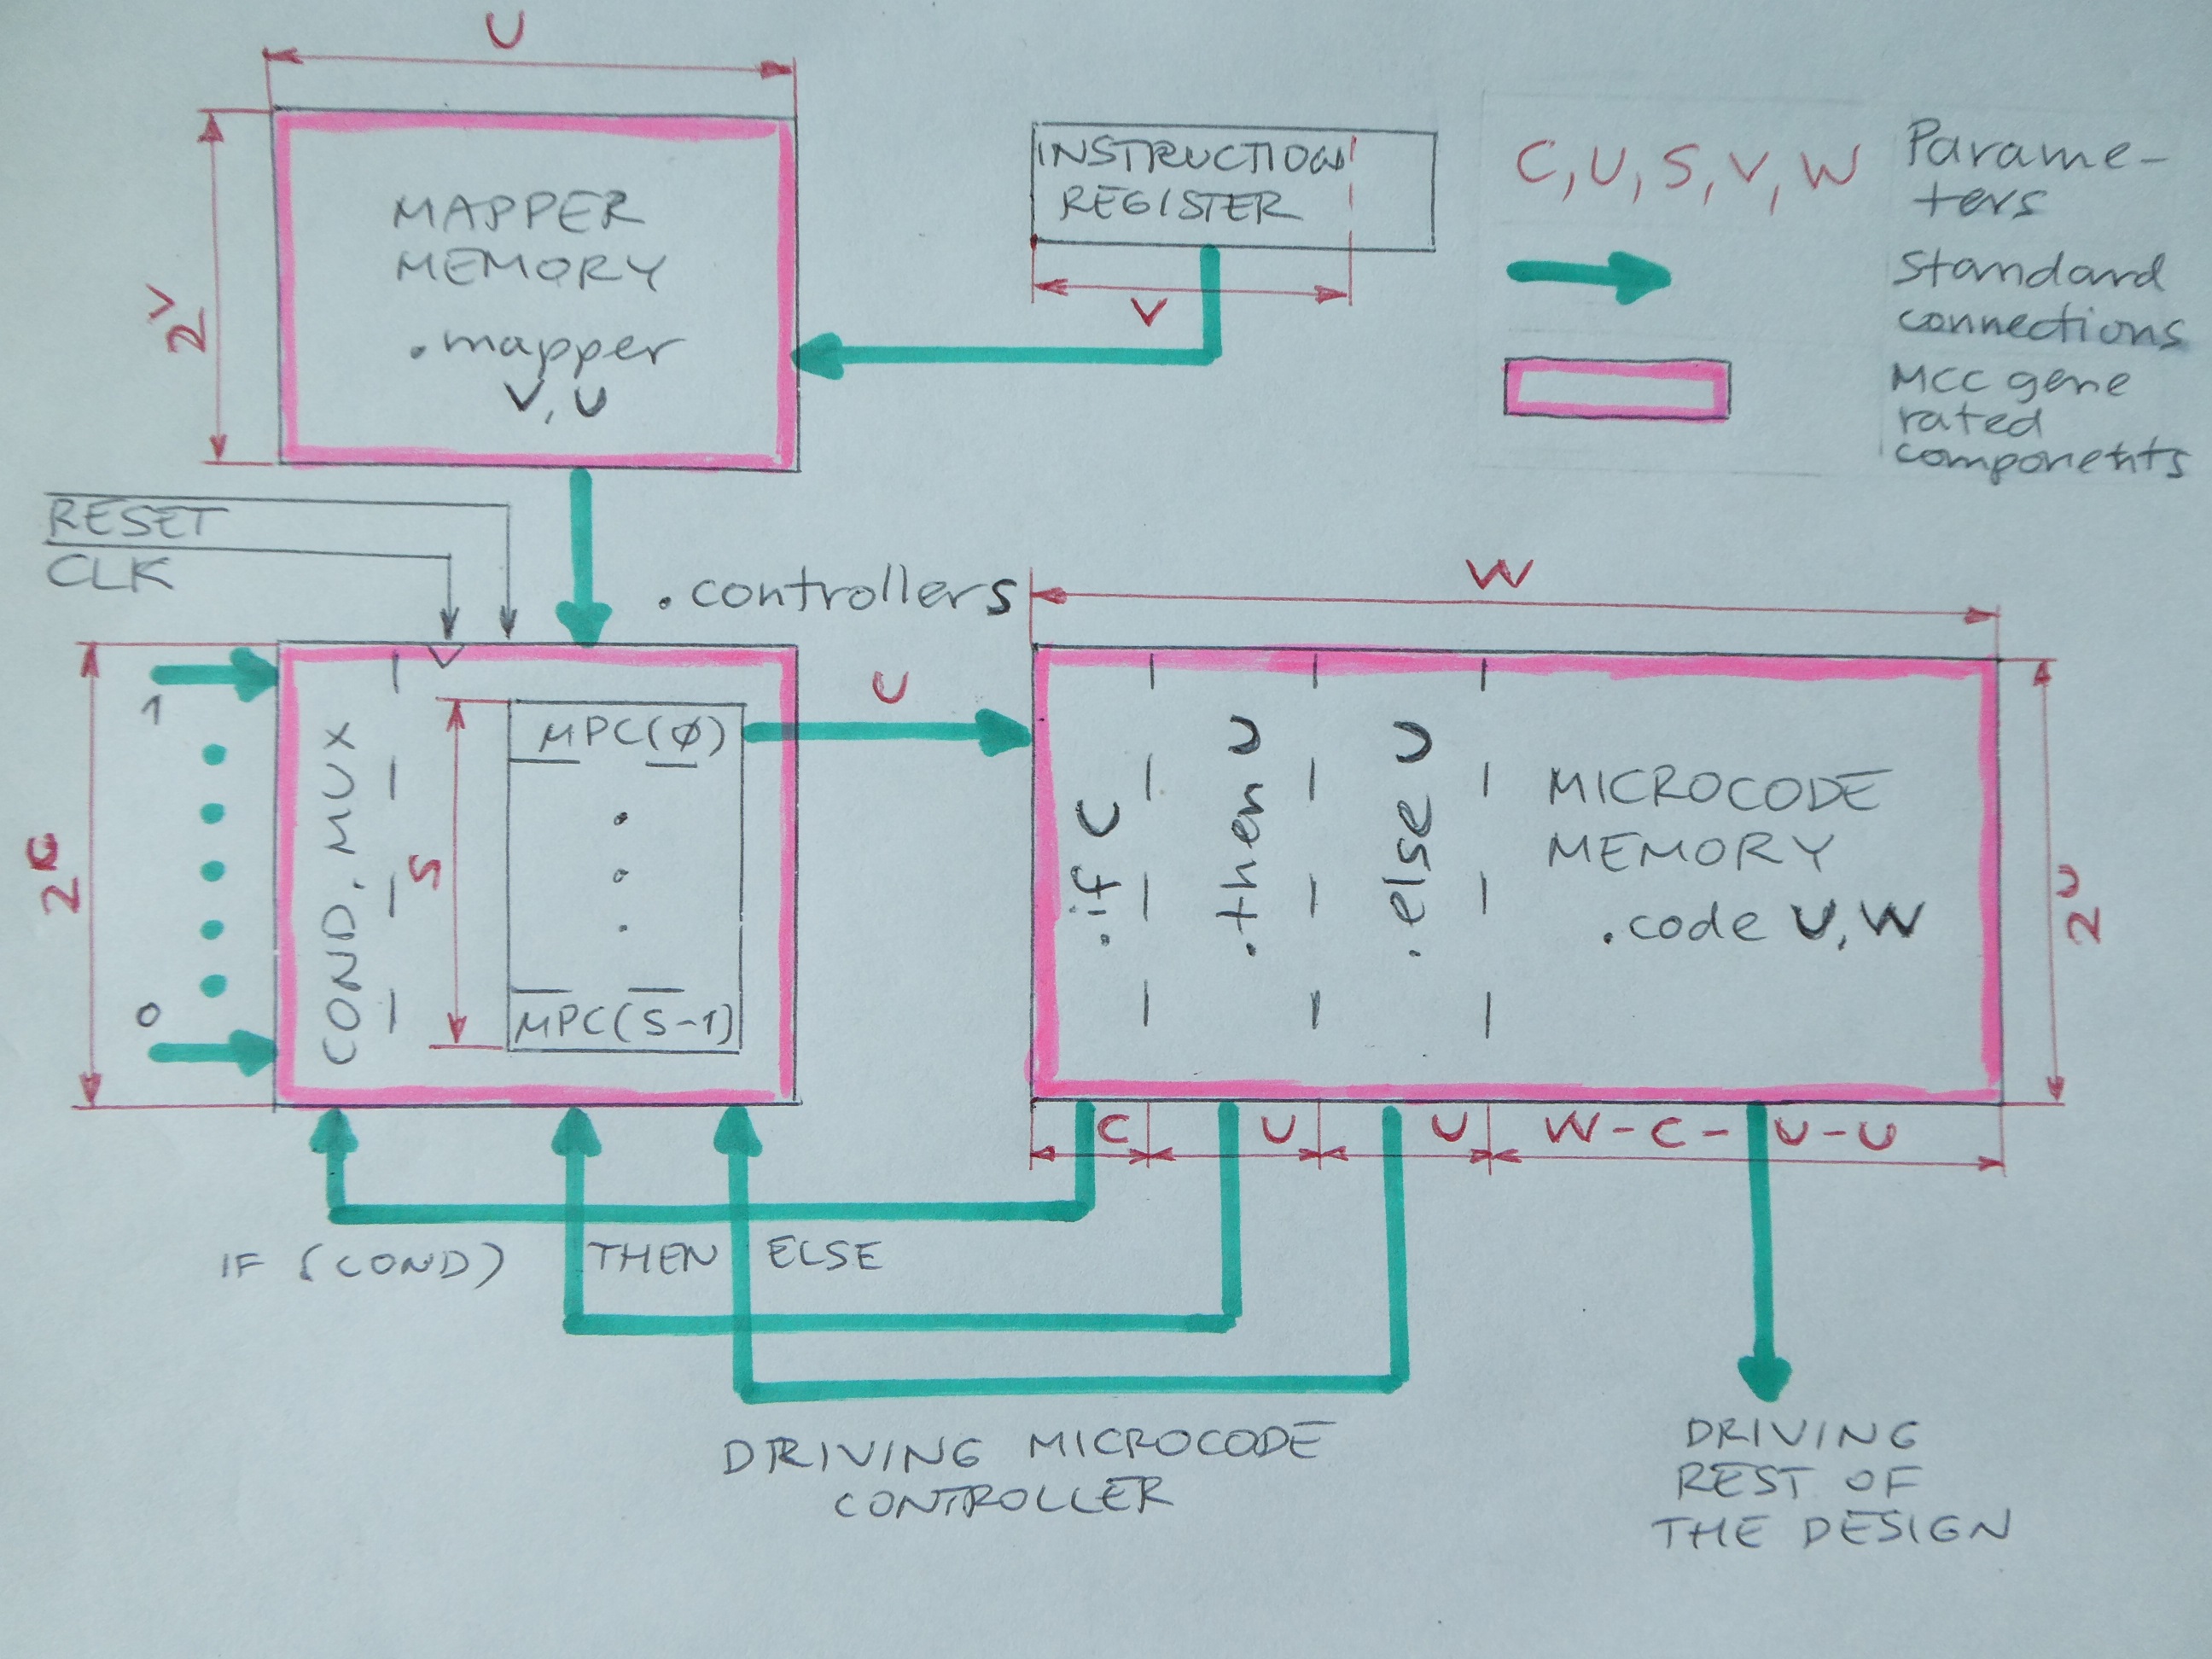 U
2^V
MAPPER
MEMORY
.mapper
V, U
INSTRUCTION
REGISTER
V
C, U, S, V, W
Parame-
ters
Standard
connections
MCC gene
rated
components
RESET
CLK
.controllerS
W
1
0
2^C
COND. MUX
S
MPC(Ø)
MPC(S-1)
U
.if C
.then U
.else U
MICROCODE
MEMORY
.code U, W
2^U
C
U
U
W-C-U-U
IF (COND)
THEN
ELSE
DRIVING MICROCODE
CONTROLLER
DRIVING
REST OF
THE DESIGN